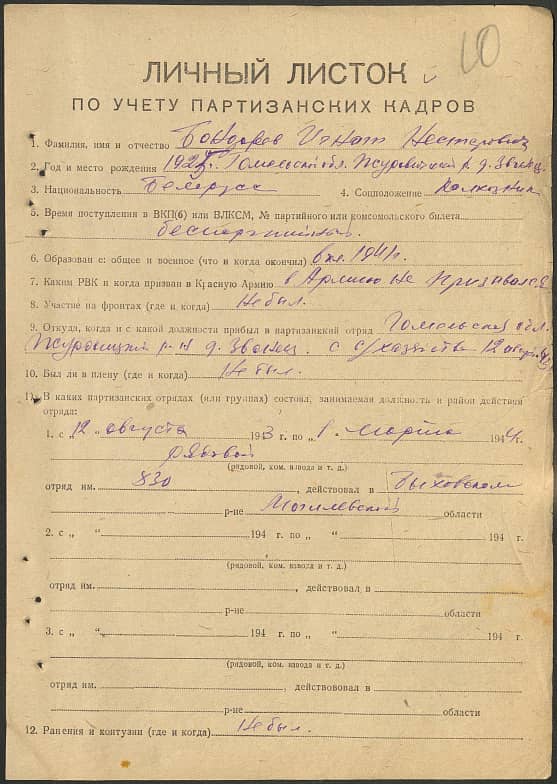 10
ЛИЧНЫЙ ЛИСТОК
ПО УЧЕТУ ПАРТИЗАНСКИХ КАДРОВ
1. Фамилия, имя и отчество Бондарев Игнат Нестерович
2. Год и место рождения Гомельской обл. Журавичский р. д. Звонец
3. Национальность Беларусс 4. Соцположение Колхозник
5. Время поступления в ВКП(б) или ВЛКСМ, № партийного или комсомольского билета
беспартийный.
6. Образование: общее и военное (что и когда окончил) 1941 г.
7. Каким РВК и когда призван в Красную Армию в Армию не призывался
8. Участие на фронтах (где и когда) Не был.
9. Откуда, когда и с какой должности прибыл в партизанский отряд Гомельская обл.
Журавицкий р-н д. Звонец. с с/хозяйства 12 августа
10. Был ли в плену (где и когда) Не был.
11. В каких партизанских отрядах (или группах) состоял, занимаемая должность и район действия
отряда:
1. с „12 августа 1943 г. по „1. Марта 1944 г.
рядовой
(рядовой, ком. взвода и т. д.)
отряд им. 830, действовал в Быховском
р-не Могилевской области
2. с „ “ 194 г. по „ “ 194 г.
(рядовой, ком. взвода и т. д.)
отряд им. , действовал в
р-не области
3. с „ “ 194 г. по „ “ 194 г.
(рядовой, ком. взвода и т. д.)
отряд им. , действововал в
р-не области
12. Ранения и контузии (где и когда) Не был.